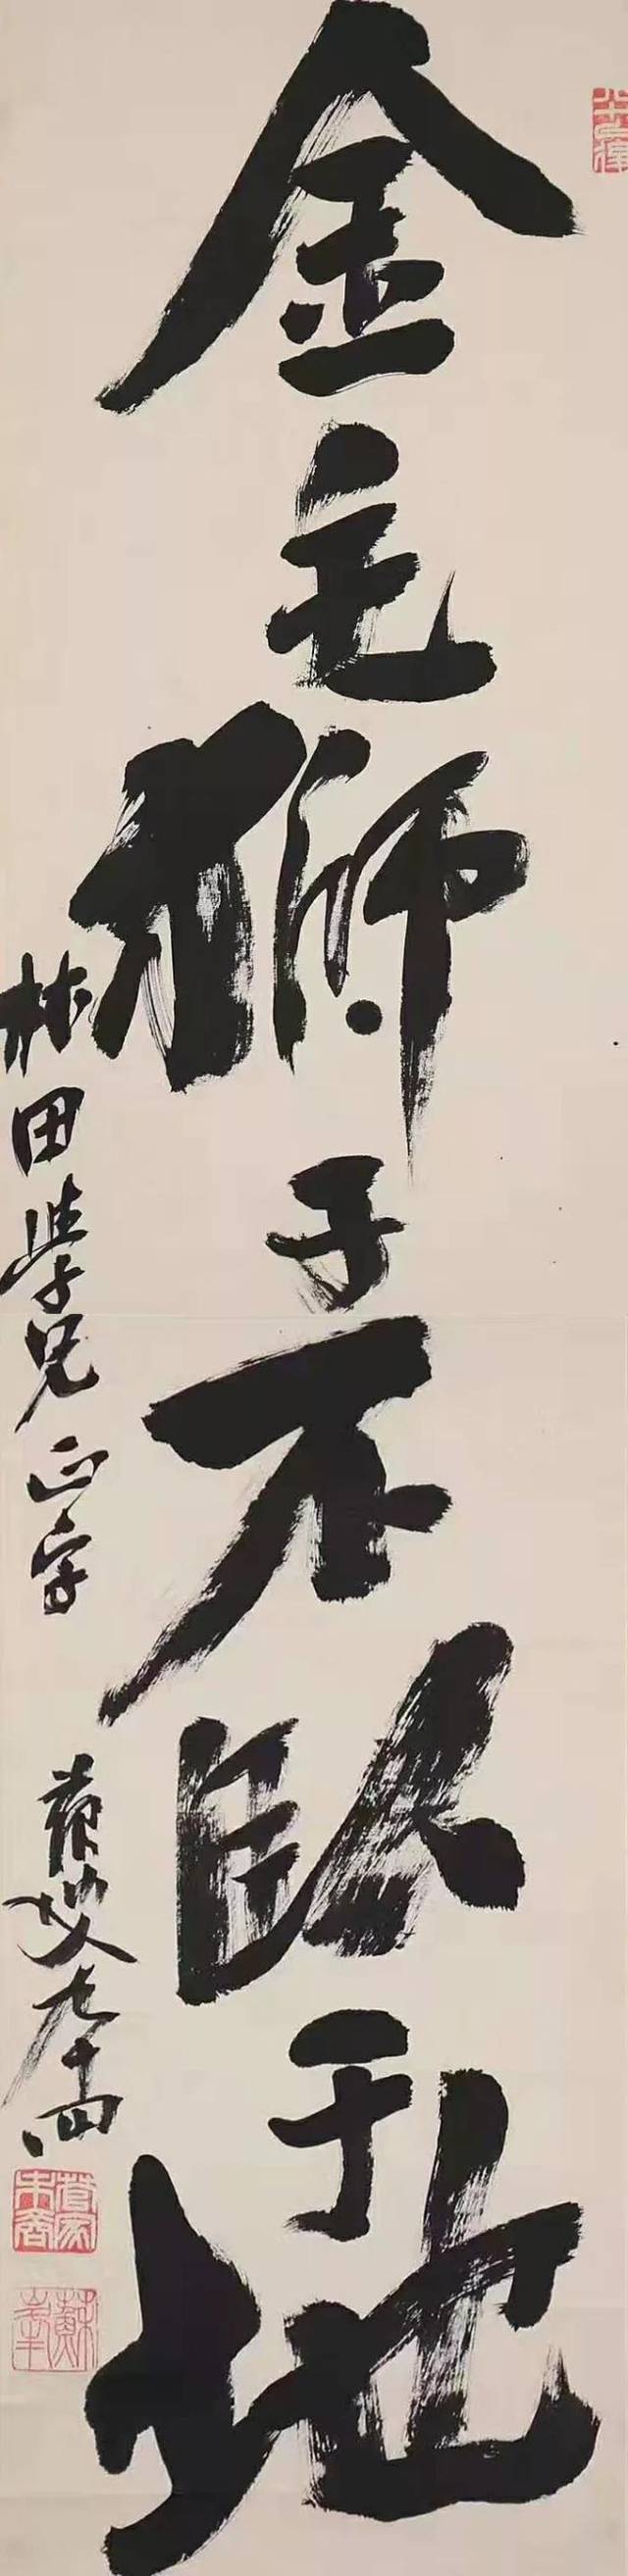 金毛獅子不臥于地
林田學兄正字
蘇叟九十四